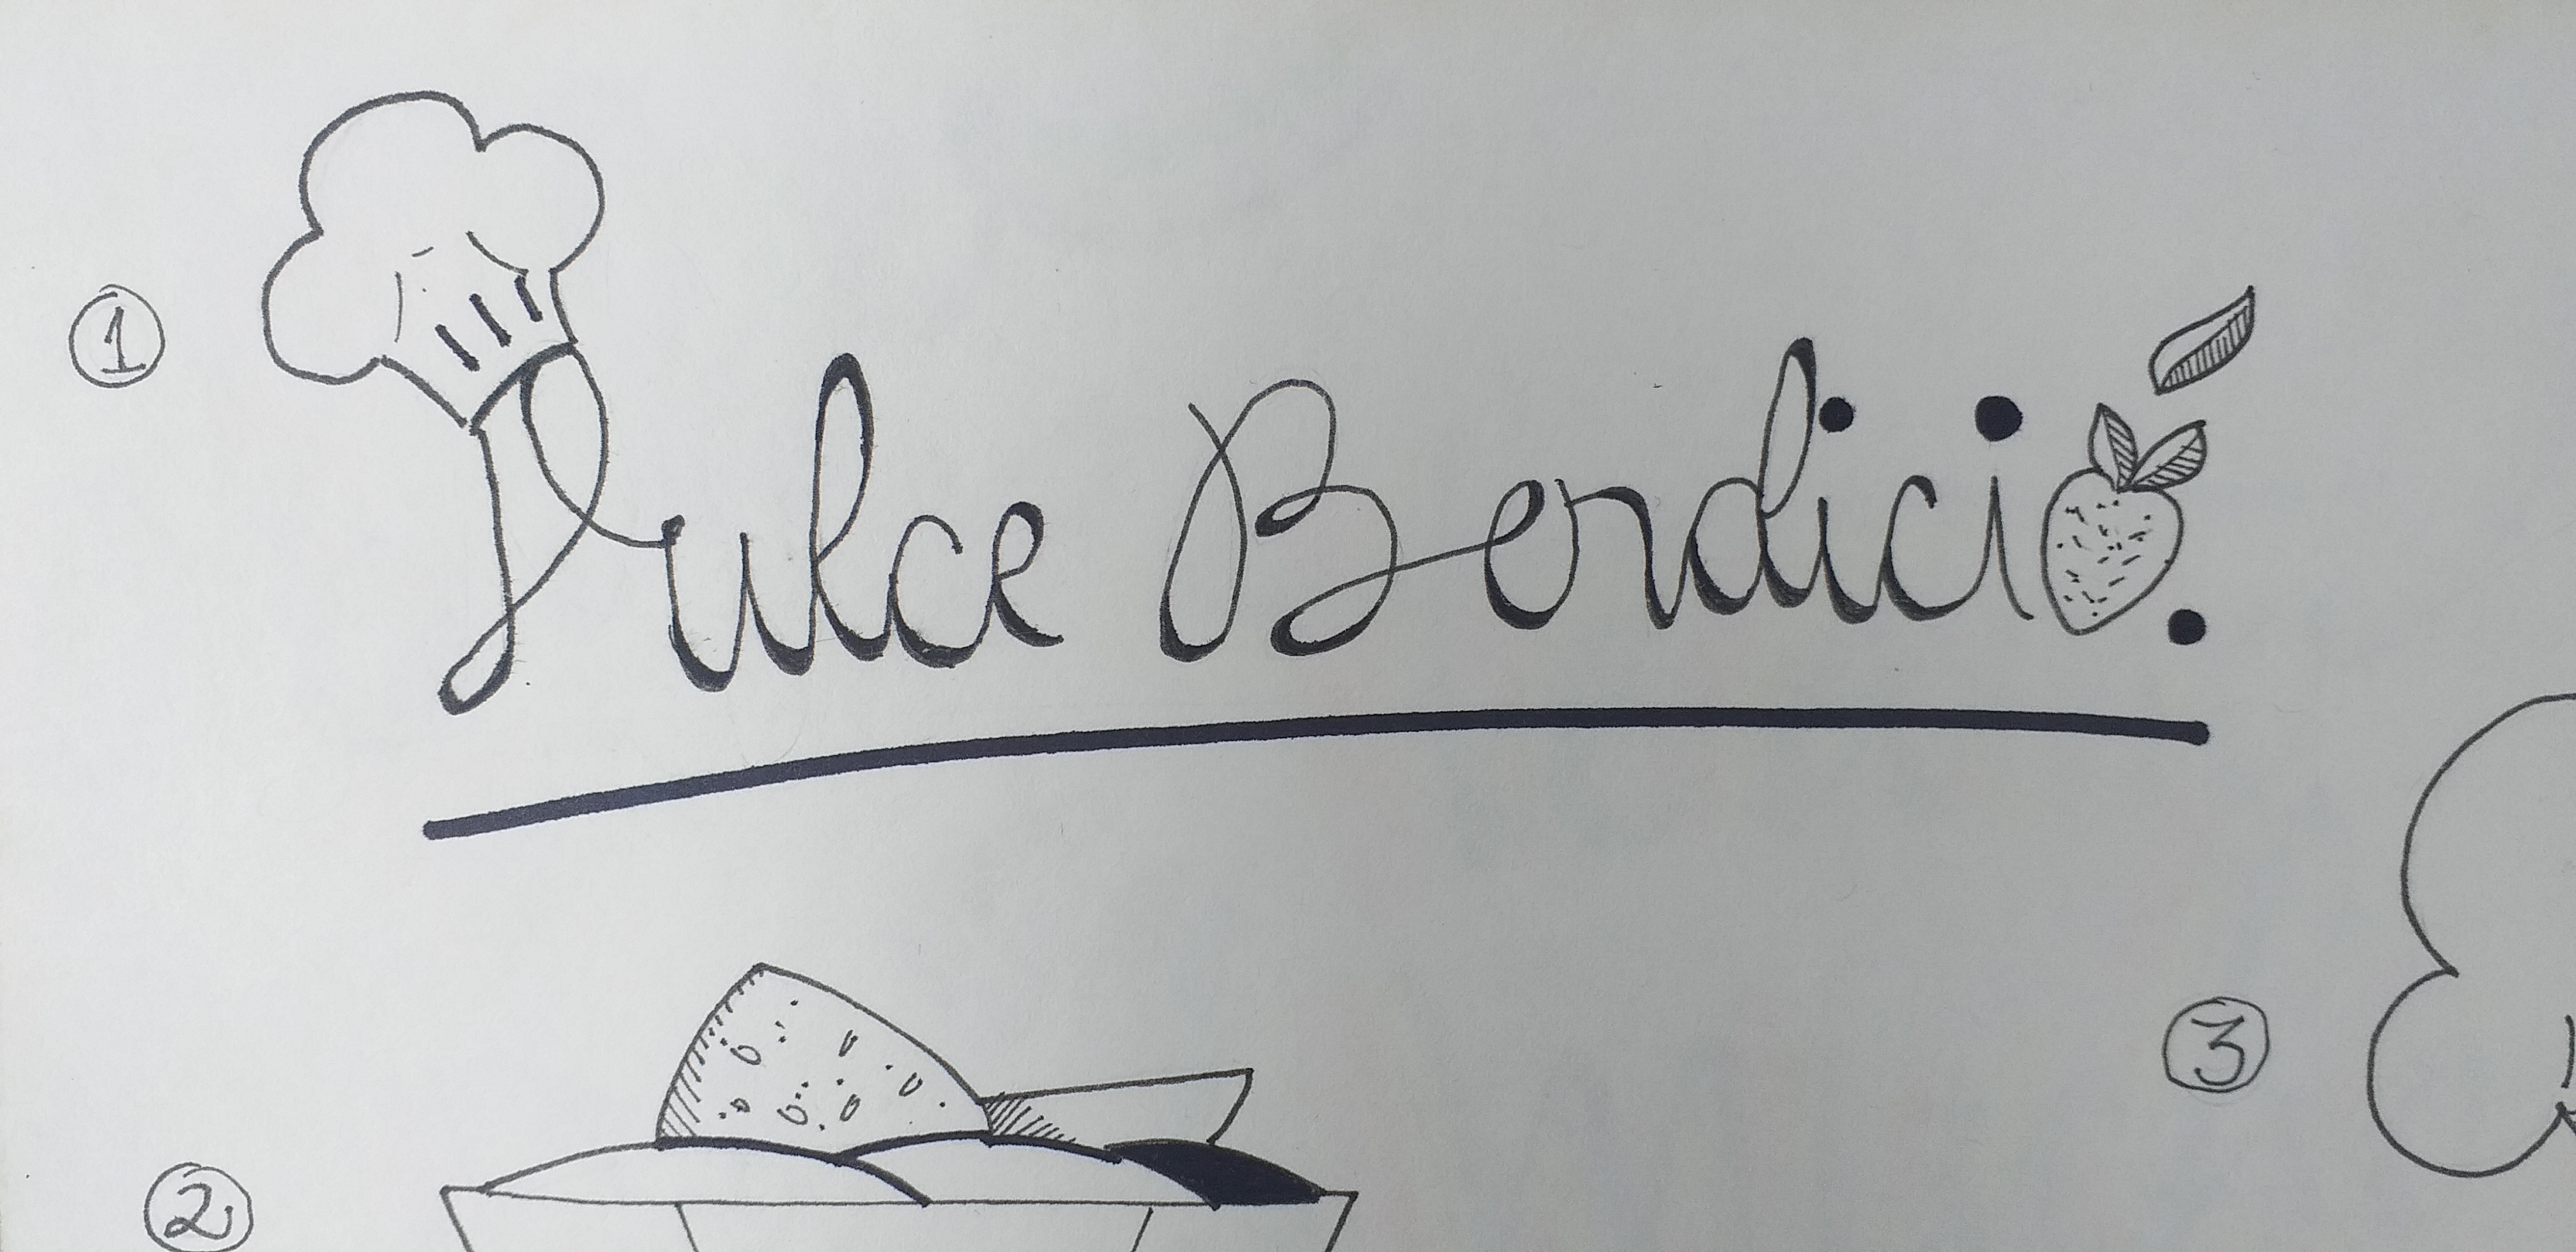 1 Dulce Bendició.
3
2